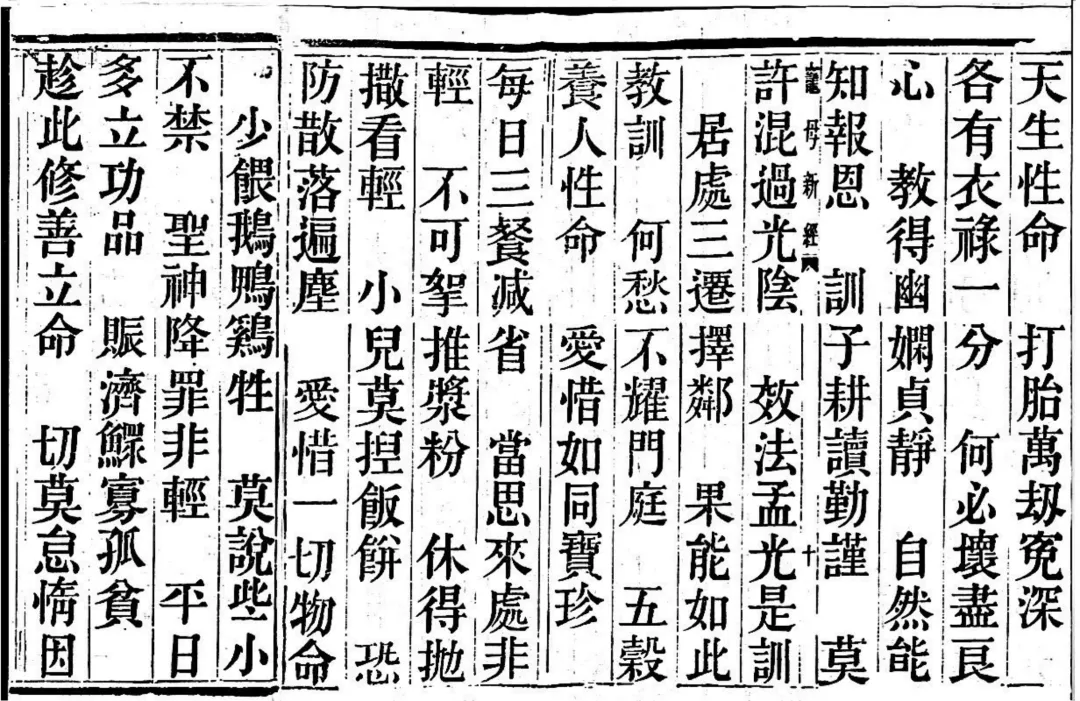 天生性命　打胎萬刼寃深
各有衣祿一分　何必壞盡良
心　教得幽嫻貞靜　自然能
知報恩　訓子耕讀勤謹　莫
龍母新經　十
許混過光陰　效法孟光是訓
居處三遷擇鄰　果能如此
教訓　何愁不耀門庭　五穀
養人性命　愛惜如同寶珍
每日三餐減省　當思來處非
輕　不可挐推漿粉　休得拋
撒看輕　小兒莫揑飯餅　恐
防散落遍塵　愛惜一切物命
少餵鵝鴨鷄牲　莫說些小
不禁　聖神降罪非輕　平日
多立功品　賑濟鰥寡孤貧
趁此修善立命　切莫怠惰因